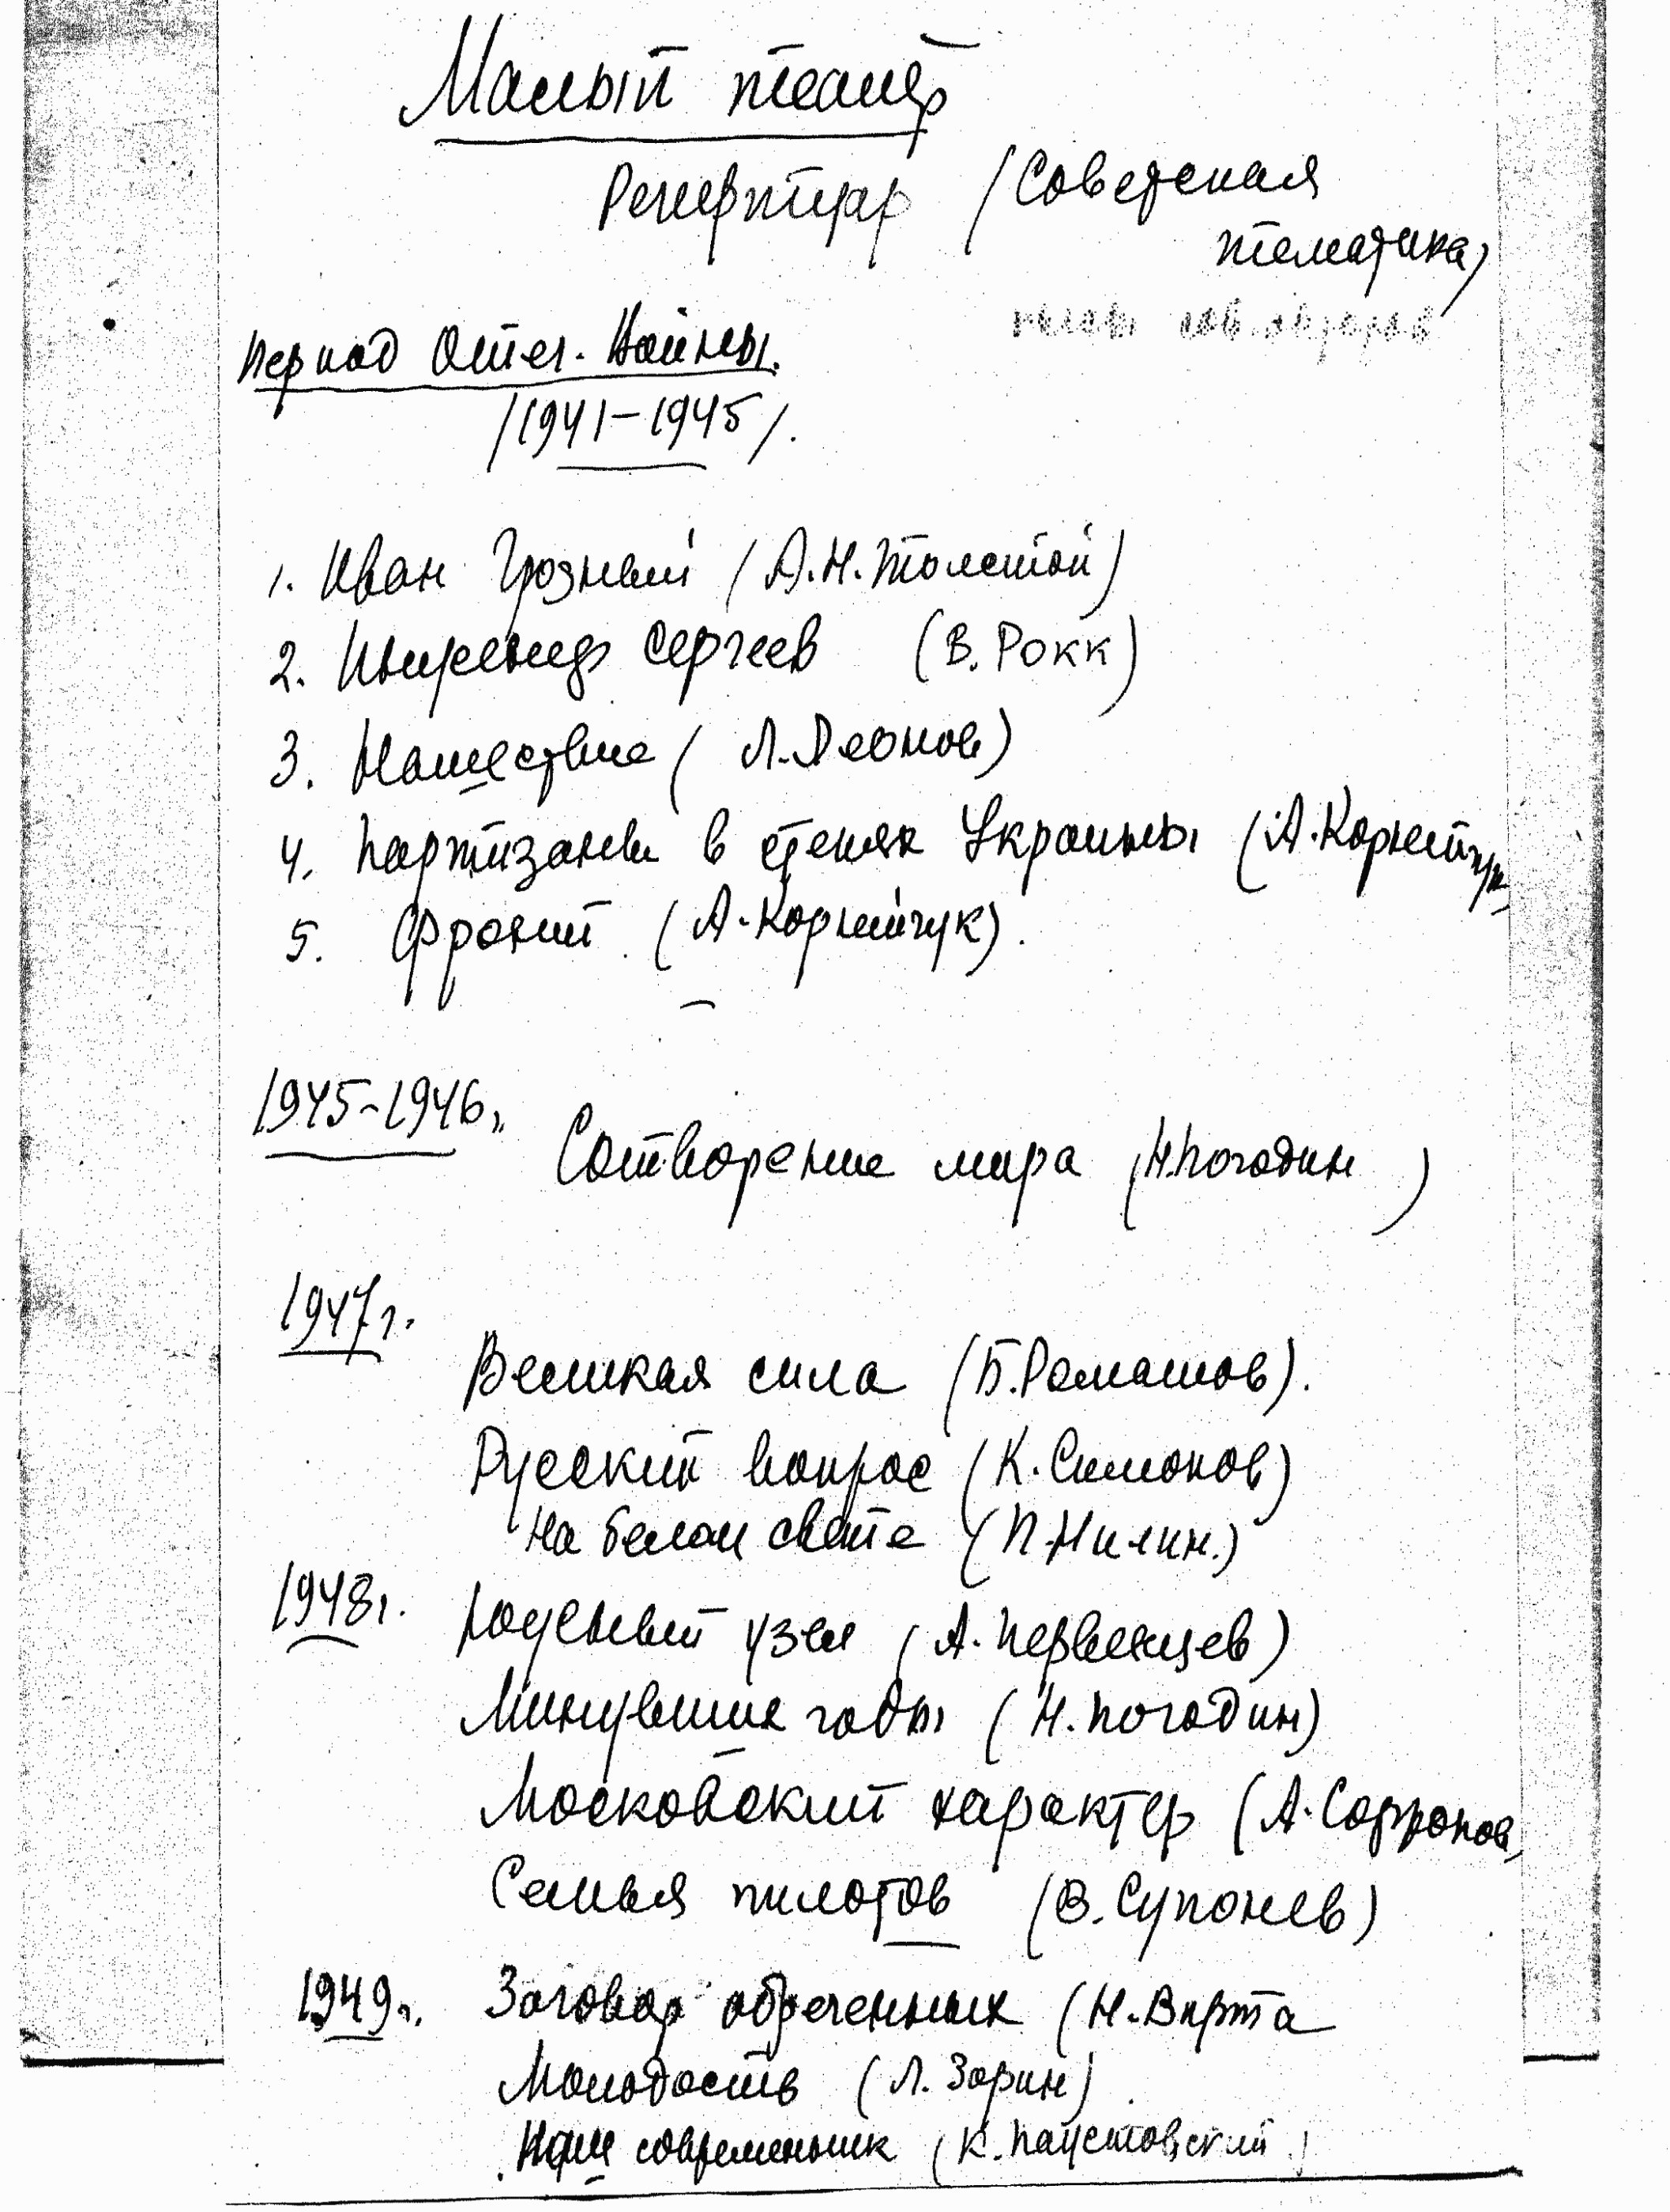 Малый театр
Репертуар /Советская
тематика)
Период Отеч. Войны.
/1941-1945/.
1. Иван Грозный (А.Н.Толстой)
2. Инженер Сергеев (В. Рокк)
3. Нашествие (Л.Леонов)
4. Партизаны в степях Украины (А.Корнейчук)
5. Фронт (А.Корнейчук).
1945-1946г.
Сотворение мира (Н.Погодин)
1947г.
Великая сила (Б.Ромашов).
Русский вопрос (К.Симонов)
На белом свете (П.Нилин.)
1948г. Южный узел (А.Первенцев)
Минувшие годы (Н.Погодин)
Московский характер (А.Софронов)
Семья пилотов (В.Супонев)
1949г. Заговор обреченных (Н.Вирта
Молодость (Л.Зорин)
Наш современник (К.Паустовский)